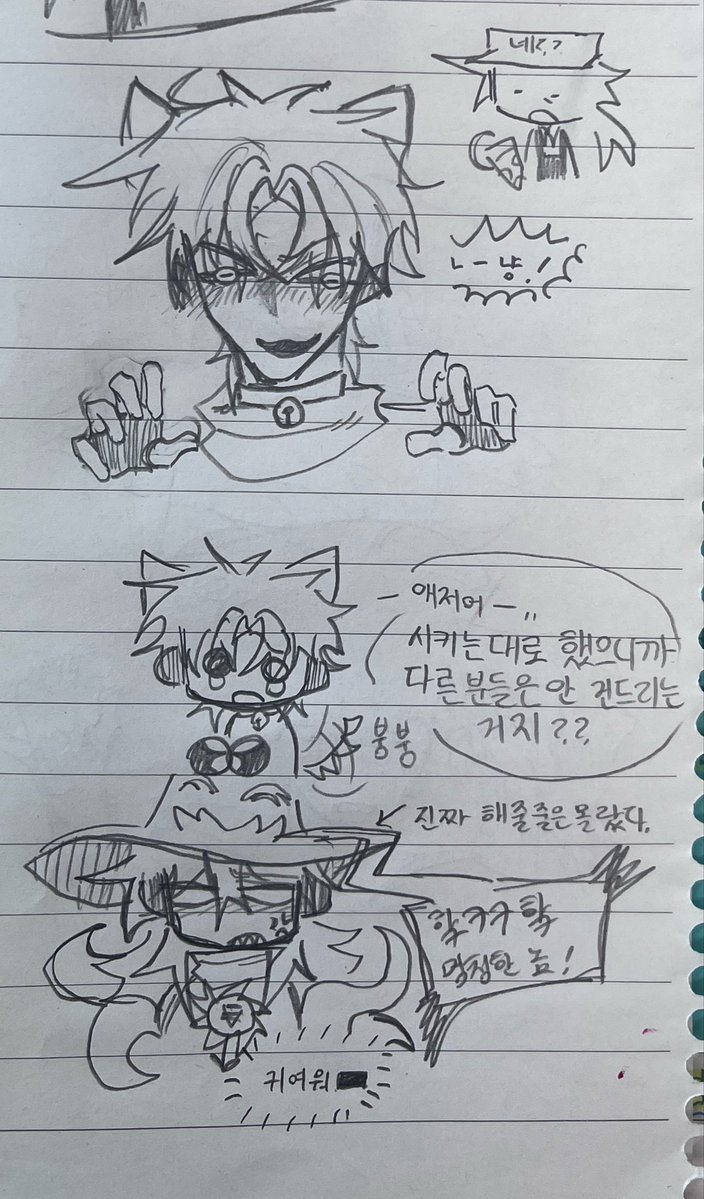 네?,?
ㄴ-냥!
- 애저어 -,,
시키는대로 했으니까
다른분들은 안 건드리는
거지??
붕붕
진짜 해줄줄은몰랐다.
핰ㅋㅋ핰
멍청한 놈!
귀여워